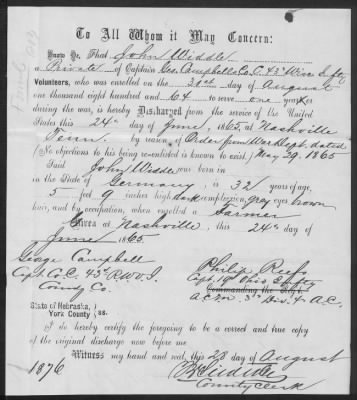 To All Whom it May Concern:
Know Ye, That John Widdle
a Private of Captain Geo. Campbells Co. C. 43d Wisc. Infty
Volunteers, who was enrolled on the 30st day of August
one thousand eight hundred and 64 to serve one year
during the war, is hereby Discharged from the service of the United
States this 24th day of June, 1865, at Nashville
Tenn. by reason of Order from War Dept. dated
(No objections to his being re-enlisted is known to exist) May 29. 1865
Said John Widdle was born in
in the State of Germany, is 32 years of age,
5 feet 9 inches high dark complexion, gray eyes, brown
hair, and by occupation, when enrolled a Farmer
Given at Nashville, this 24th day of
June 1865.
George Campbell
Capt. Co. C. 43d R. W. V. I.
County Co.
Philip
Capt. Ohio Infty
Commanding the
A.C.M. 3d Div. 4th A.C.
State of Nebraska,
York County ss.
I do hereby certify the foregoing to be a correct and true copy
of the original discharge now before me.
Witness my hand and seal, this 23 day of August
1876
County Clerk